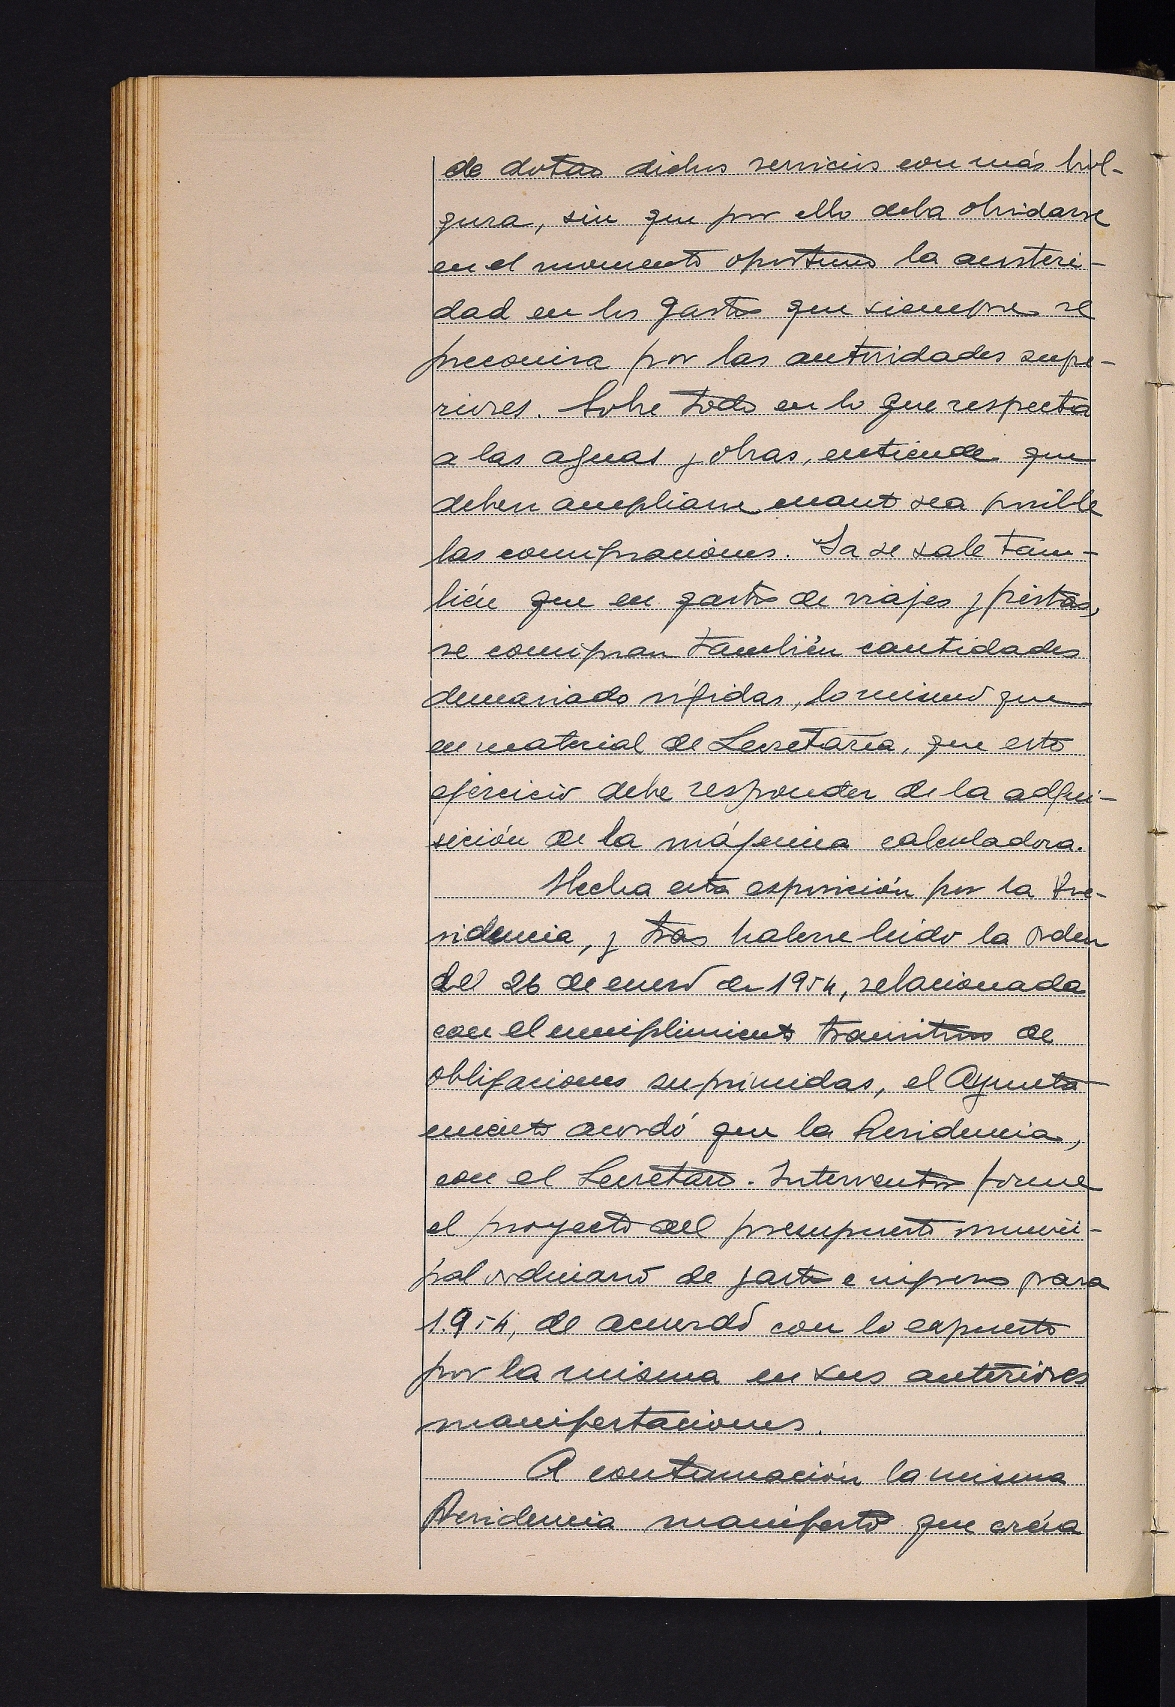 de dotar dichos servicios con más hol-
gura, sin que por ello deba olvidarse
en el momento oportuno la austeri-
dad en los gastos que siempre se
preconiza por las autoridades supe-
riores. Sobre todo en lo que respecta
a las aguas y obras, entiende que
deben ampliarse cuanto sea posible
las consignaciones. Ya se sabe tam-
bién que en gastos de viajes y fiestas,
se consignan también cantidades
demasiado rígidas, lo mismo que
en material de Secretaría, que este
ejercicio debe responder de la adqui-
sición de la máquina calculadora.
Hecha esta exposición por la Pre-
sidencia, y tras haberse leído la orden
del 26 de enero de 1954, relacionada
con el cumplimiento transitorio de
obligaciones suprimidas, el Ayunta
miento acordó que la Presidencia,
con el Secretario-Interventor forme
el proyecto del presupuesto munici-
pal ordinario de gastos e ingresos para
1.954, de acuerdo con lo expuesto
por la misma en sus anteriores
manifestaciones.
A continuación la misma
Presidencia manifestó que creía